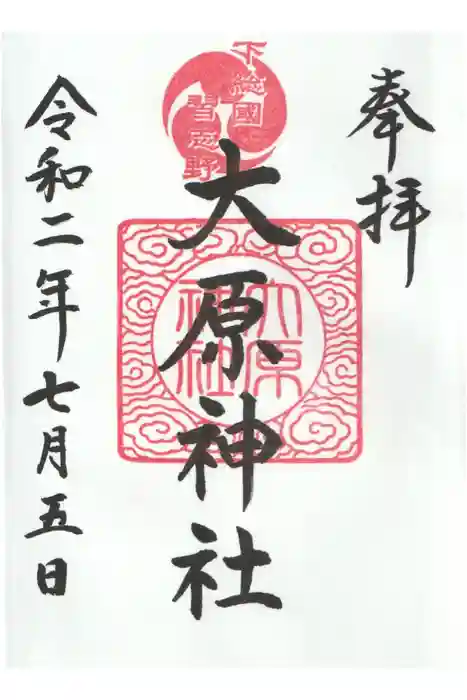 奉拝
下総國
習志野
大原神社
大原
神社
令和二年七月五日